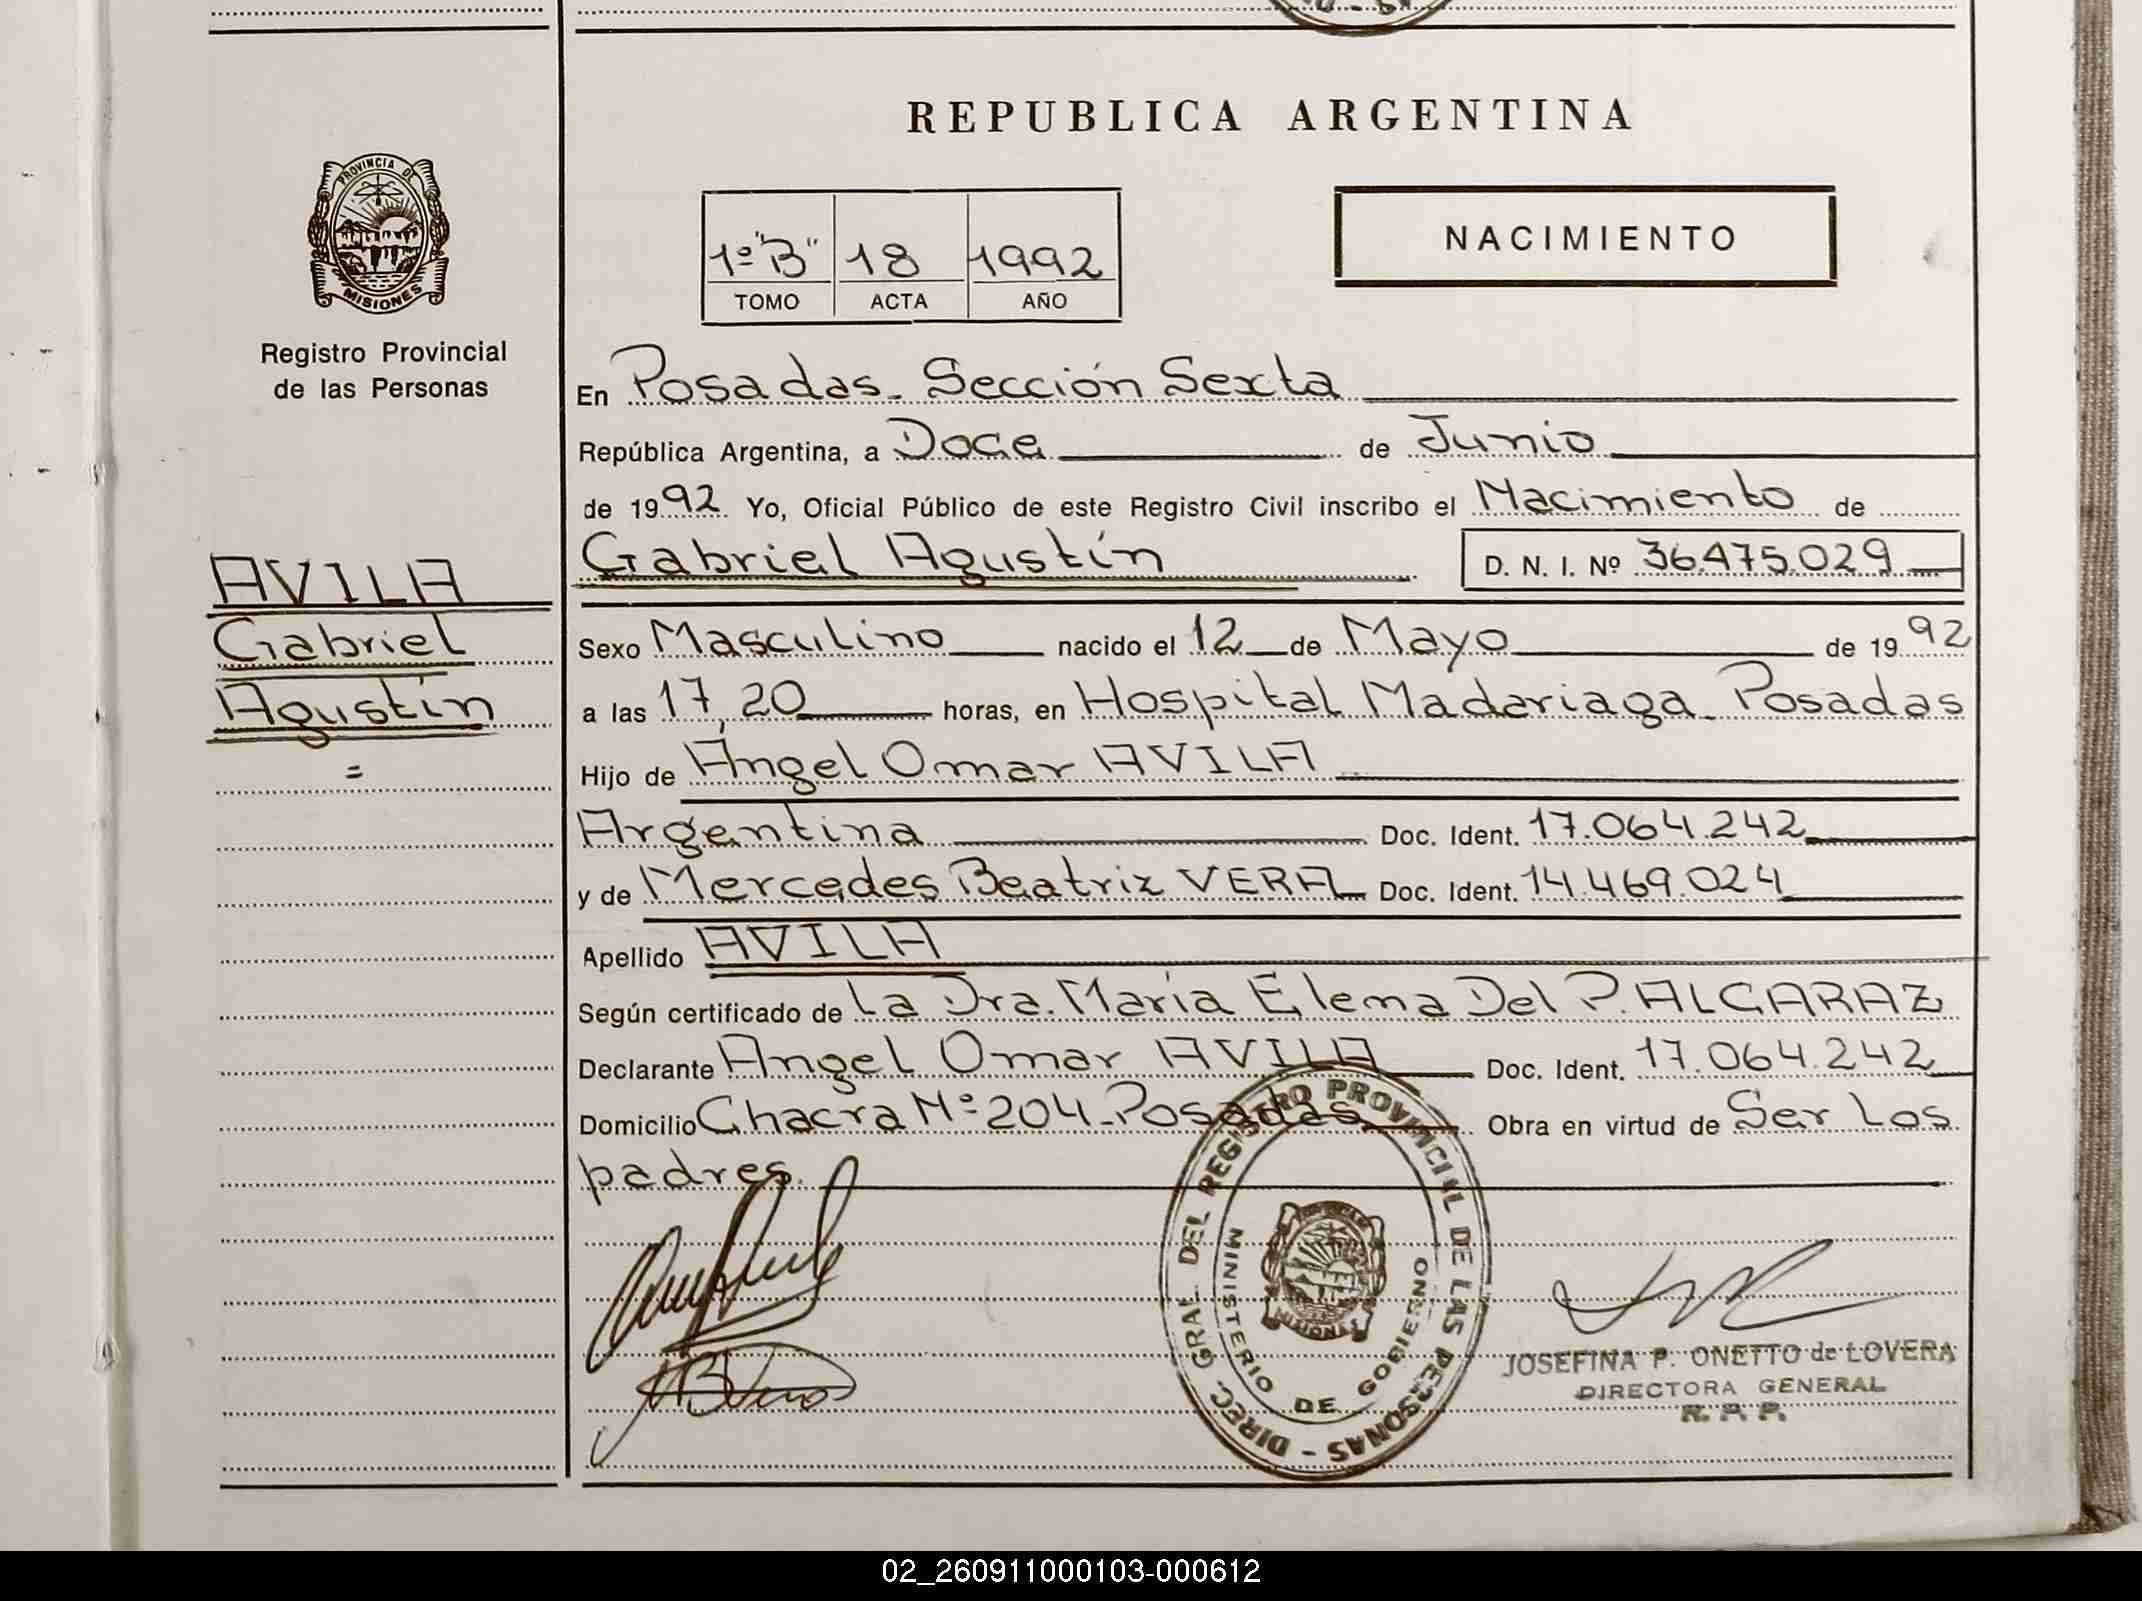 REPUBLICA ARGENTINA
PROVINCIA DE
MISIONES
Registro Provincial
de las Personas
1º "B" 18 1992
TOMO ACTA AÑO
NACIMIENTO
En Posadas. Sección Sexta
República Argentina, a Doce de Junio
de 1992 Yo, Oficial Público de este Registro Civil inscribo el Nacimiento de
Gabriel Agustín D. N. I. Nº 36.475.029
AVILA
Gabriel
Agustín
=
Sexo Masculino nacido el 12 de Mayo de 1992
a las 17,20 horas, en Hospital Madariaga. Posadas
Hijo de Angel Omar AVILA
Argentina Doc. Ident. 17.064.242
y de Mercedes Beatriz VERA Doc. Ident. 14.469.024
Apellido AVILA
Según certificado de La Dra. María Elena Del P. ALCARAZ
Declarante Angel Omar AVILA Doc. Ident. 17.064.242
Domicilio Chacra Nº 204. Posadas Obra en virtud de Ser Los
padres.
DIREC. GRAL. DEL REGISTRO PROVINCIAL DE LAS PERSONAS -
MINISTERIO DE GOBIERNO
MISIONES
JOSEFINA P. ONETTO de LOVERA
DIRECTORA GENERAL
R. P. P.
02_260911000103-000612